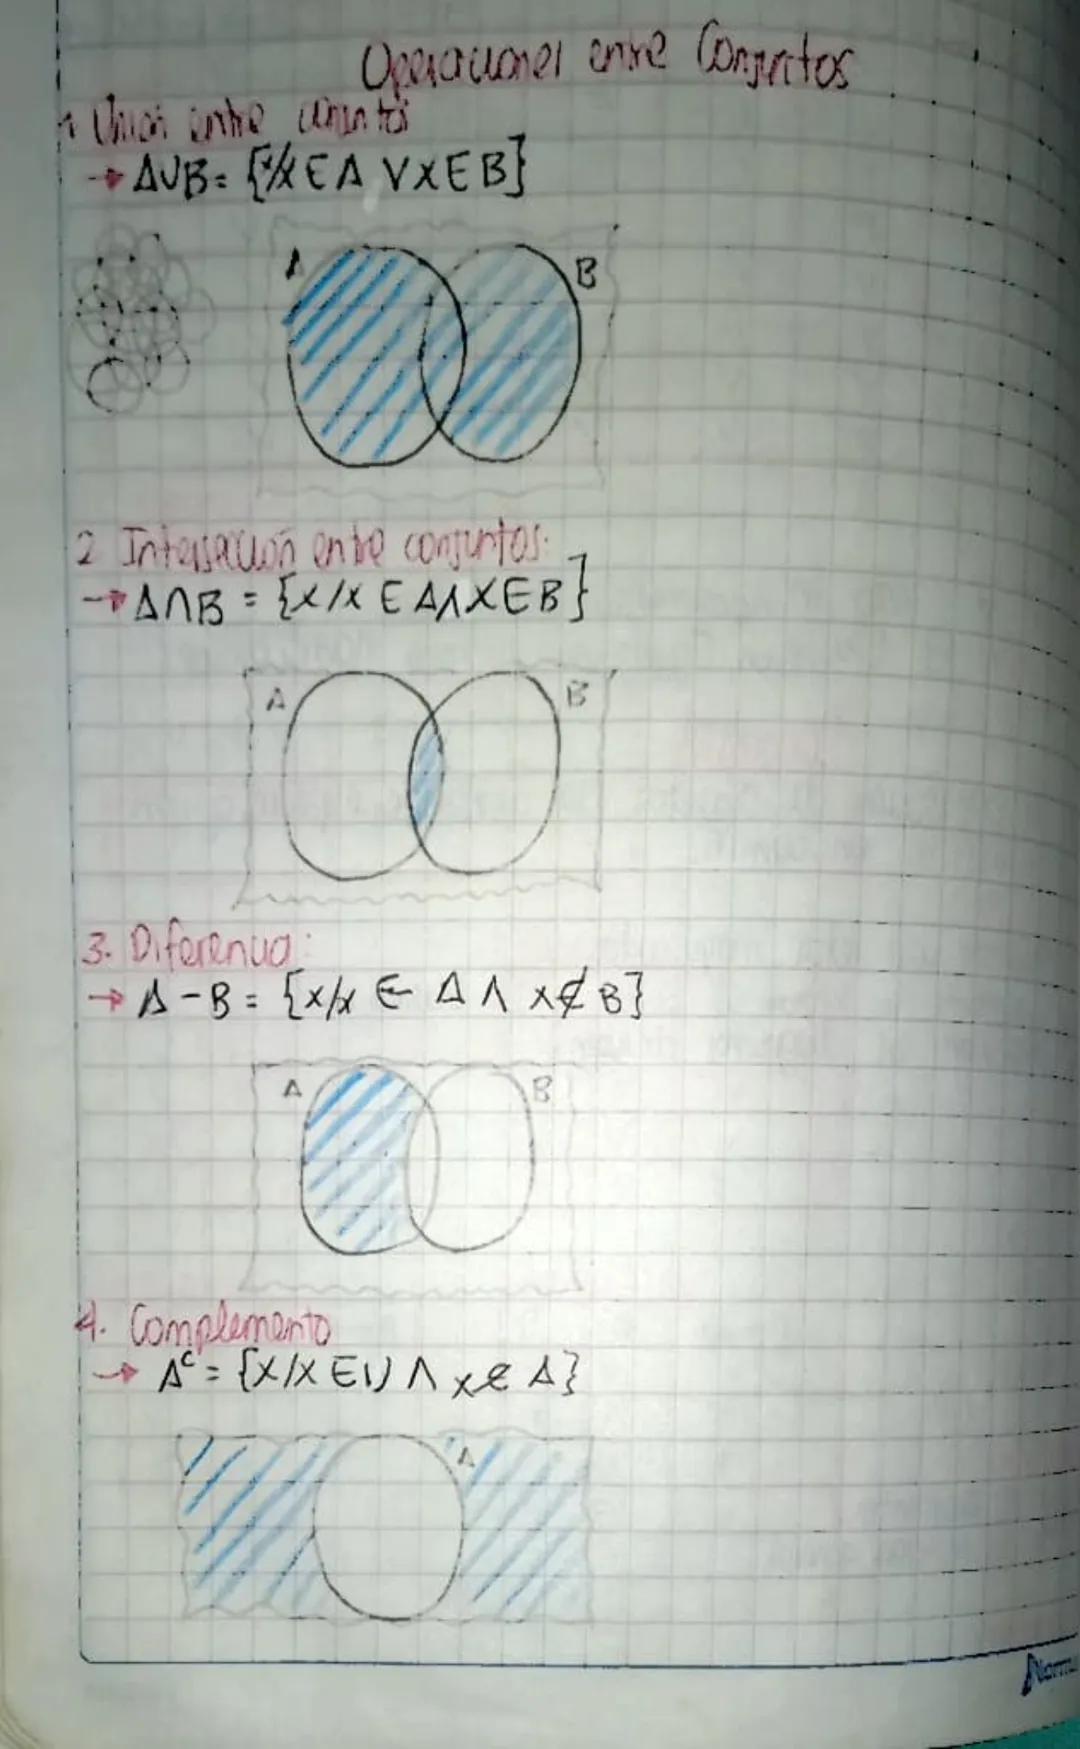 Operaciones entre Conjuntos
1. Union entre conjuntos
→ A∪B = {x/x ∈ A ∨ x ∈ B}
A B
2 Intersección entre conjuntos:
→ A∩B = {x/x ∈ A ∧ x ∈ B}
A B
3. Diferencia:
→ A - B = {x/x ∈ A ∧ x ∉ B}
A B
4. Complemento
→ Aᶜ = {x/x ∈ U ∧ x ∉ A}
A
Norma